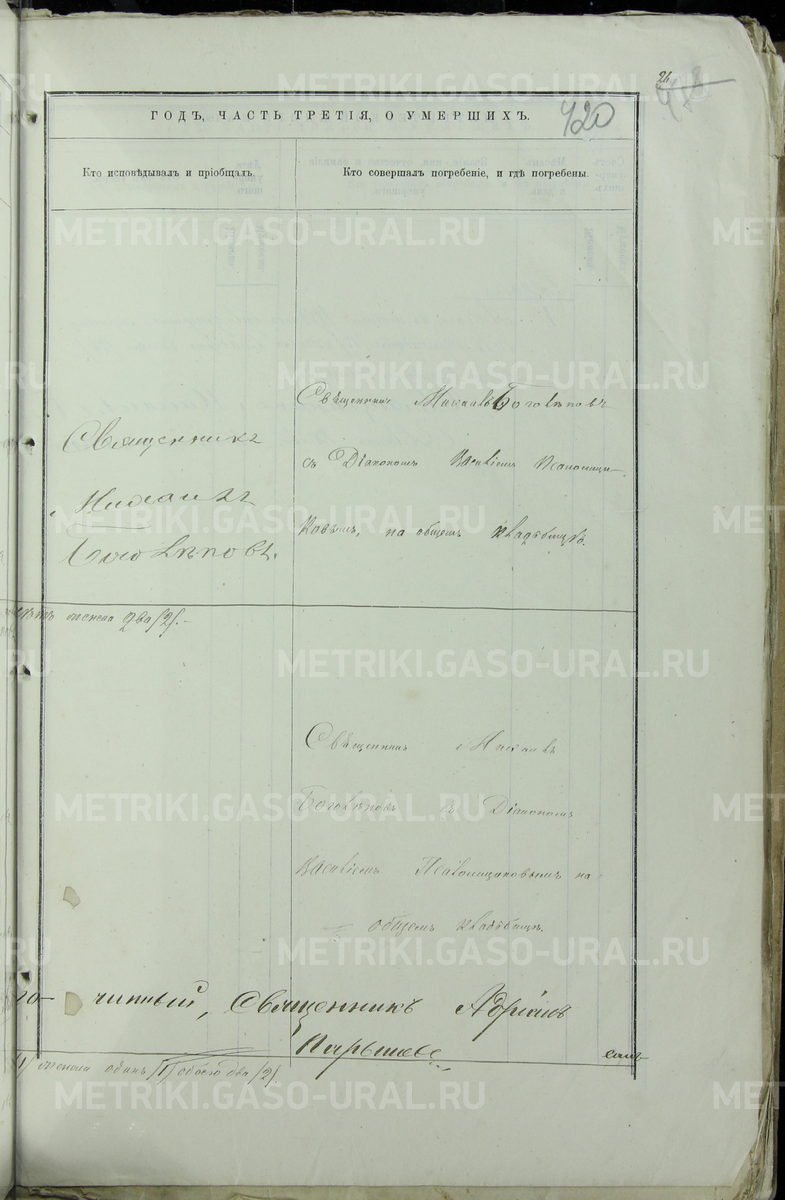 26
420
ГОДЪ, ЧАСТЬ ТРЕТІЯ, О УМЕРШИХЪ.
Кто исповѣдывалъ и пріобщалъ.
Кто совершалъ погребеніе, и гдѣ погребены.
Священникъ
Михаилъ
Боголѣповъ.
Священникъ Михаилъ Боголѣповъ
съ Діакономъ Василіемъ
на общемъ кладбищѣ.
женска два /2/.
Священникъ Михаилъ
Боголѣповъ съ Діакономъ
Василіемъ на
общемъ кладбищѣ.
чинный, Священникъ Адріанъ
женска одинъ /1/ обоего два /2/.
METRIKI.GASO-URAL.RU